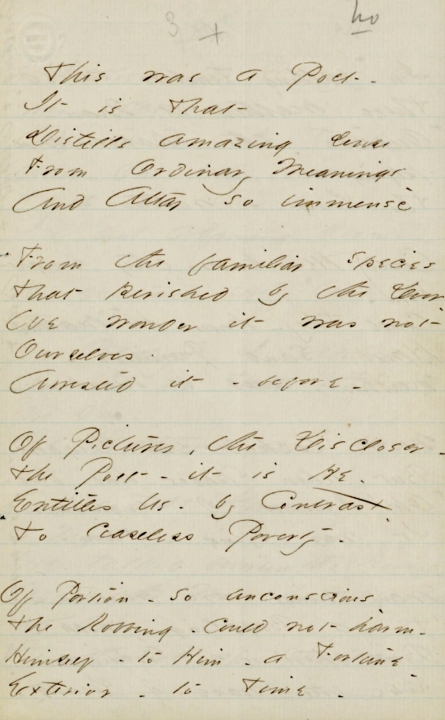 3 +
no
This was a Poet -
It is That
Distills amazing sense
From Ordinary Meanings
And Attar so immense
From the familiar species
That perished by the Door
We wonder it was not
Ourselves
Arrested it - before -
Of Pictures, the Discloser -
The Poet - it is He -
Entitles Us - by Contrast
To ceaseless Poverty -
Of Portion - so unconscious
The Robbing - could not harm -
Himself - to Him - a Fortune
Exterior - to Time -